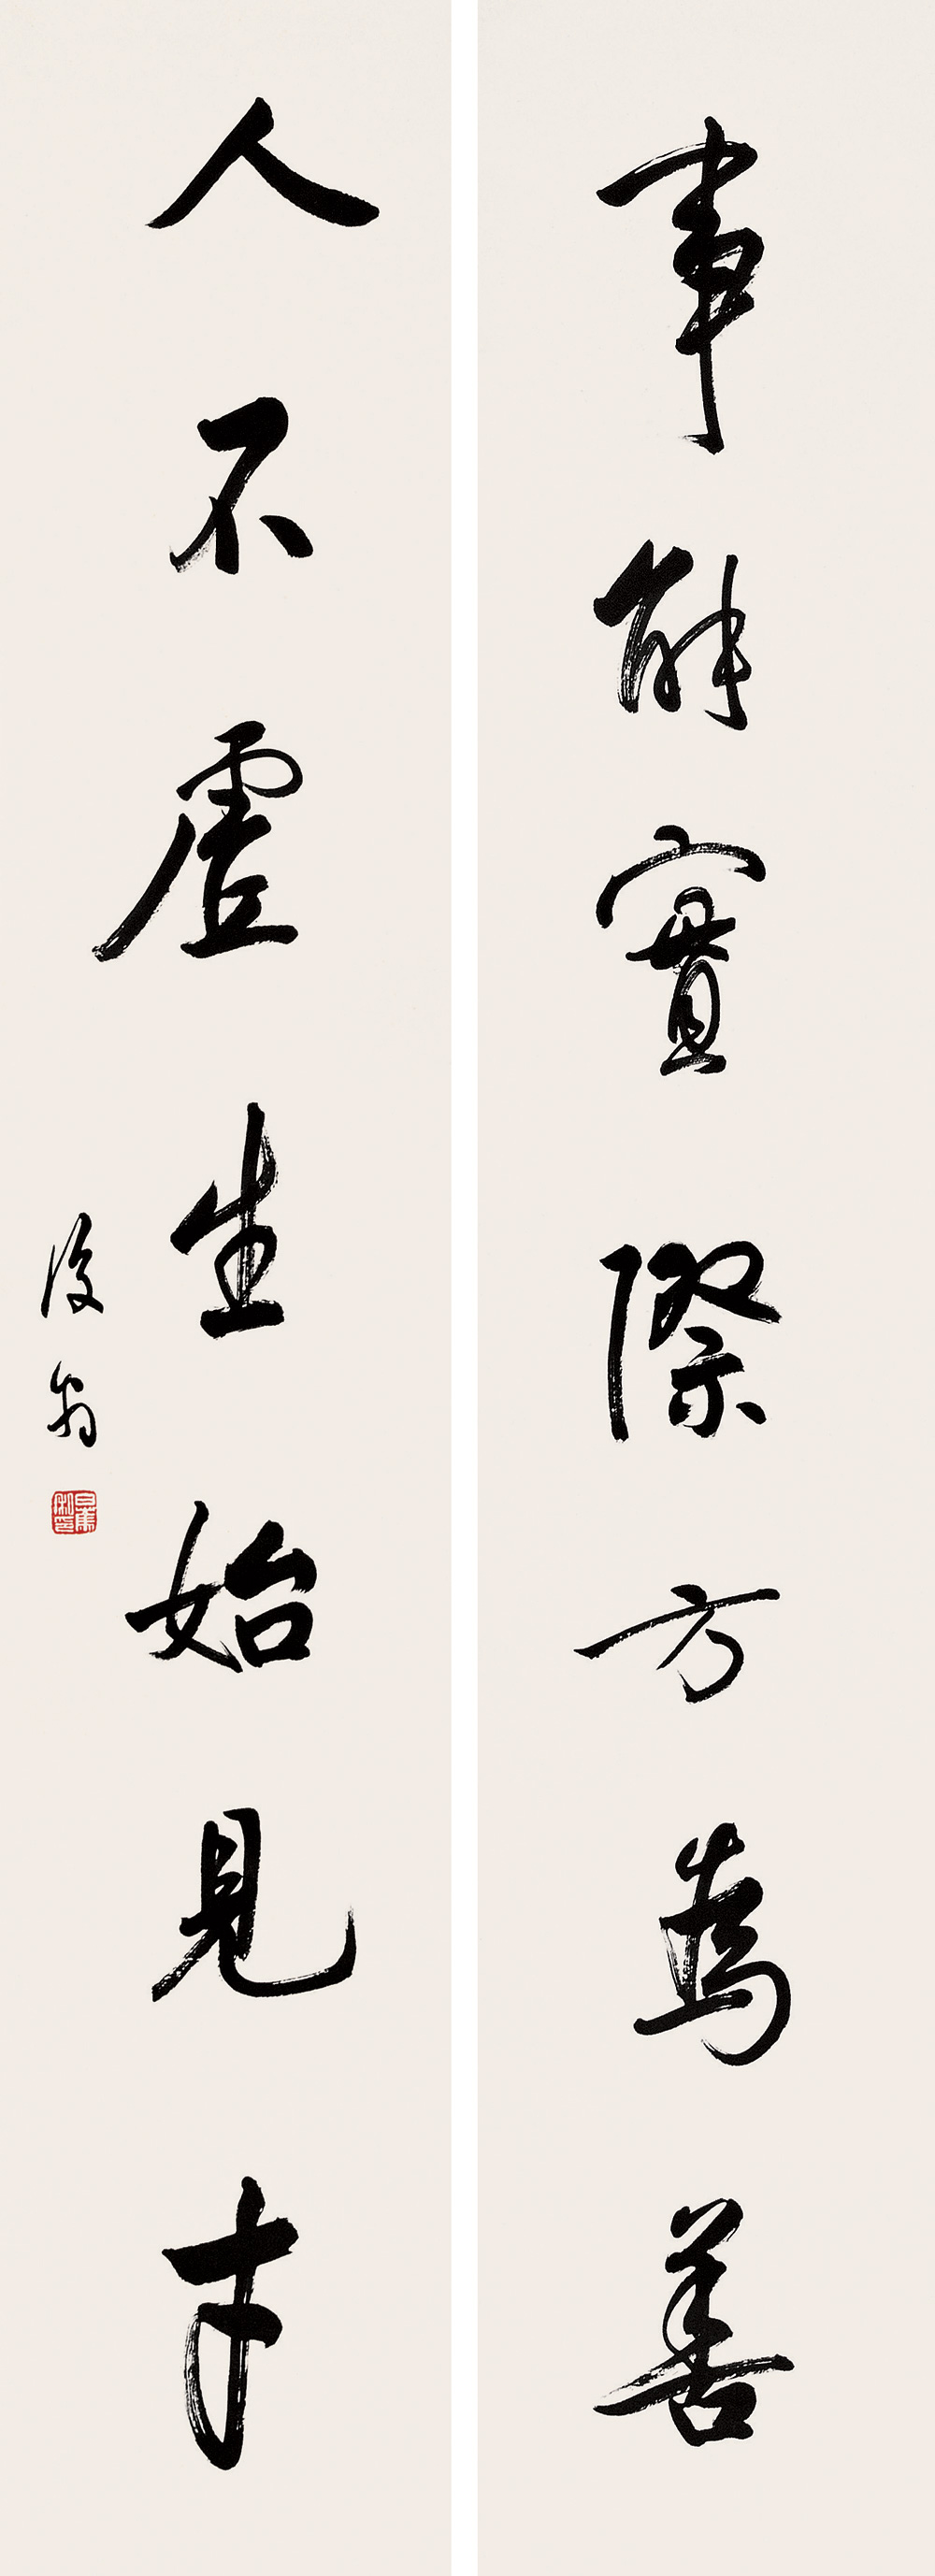 事能實際方為善
人不虛生始見
翁